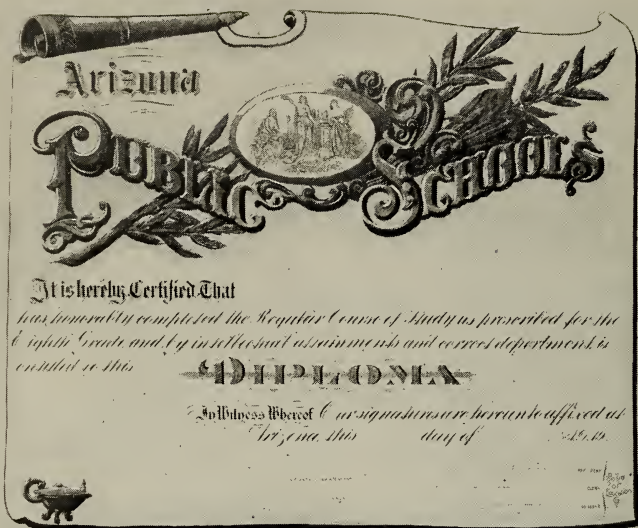 Arizona
PUBLIC SCHOOLS
It is hereby Certified That
has honorably completed the Regular Course of Study as prescribed for the
Eighth Grade and by intellectual attainments and correct deportment, is
entitled to this DIPLOMA
In Witness Whereof Our signatures are hereunto affixed at
Arizona, this day of 19